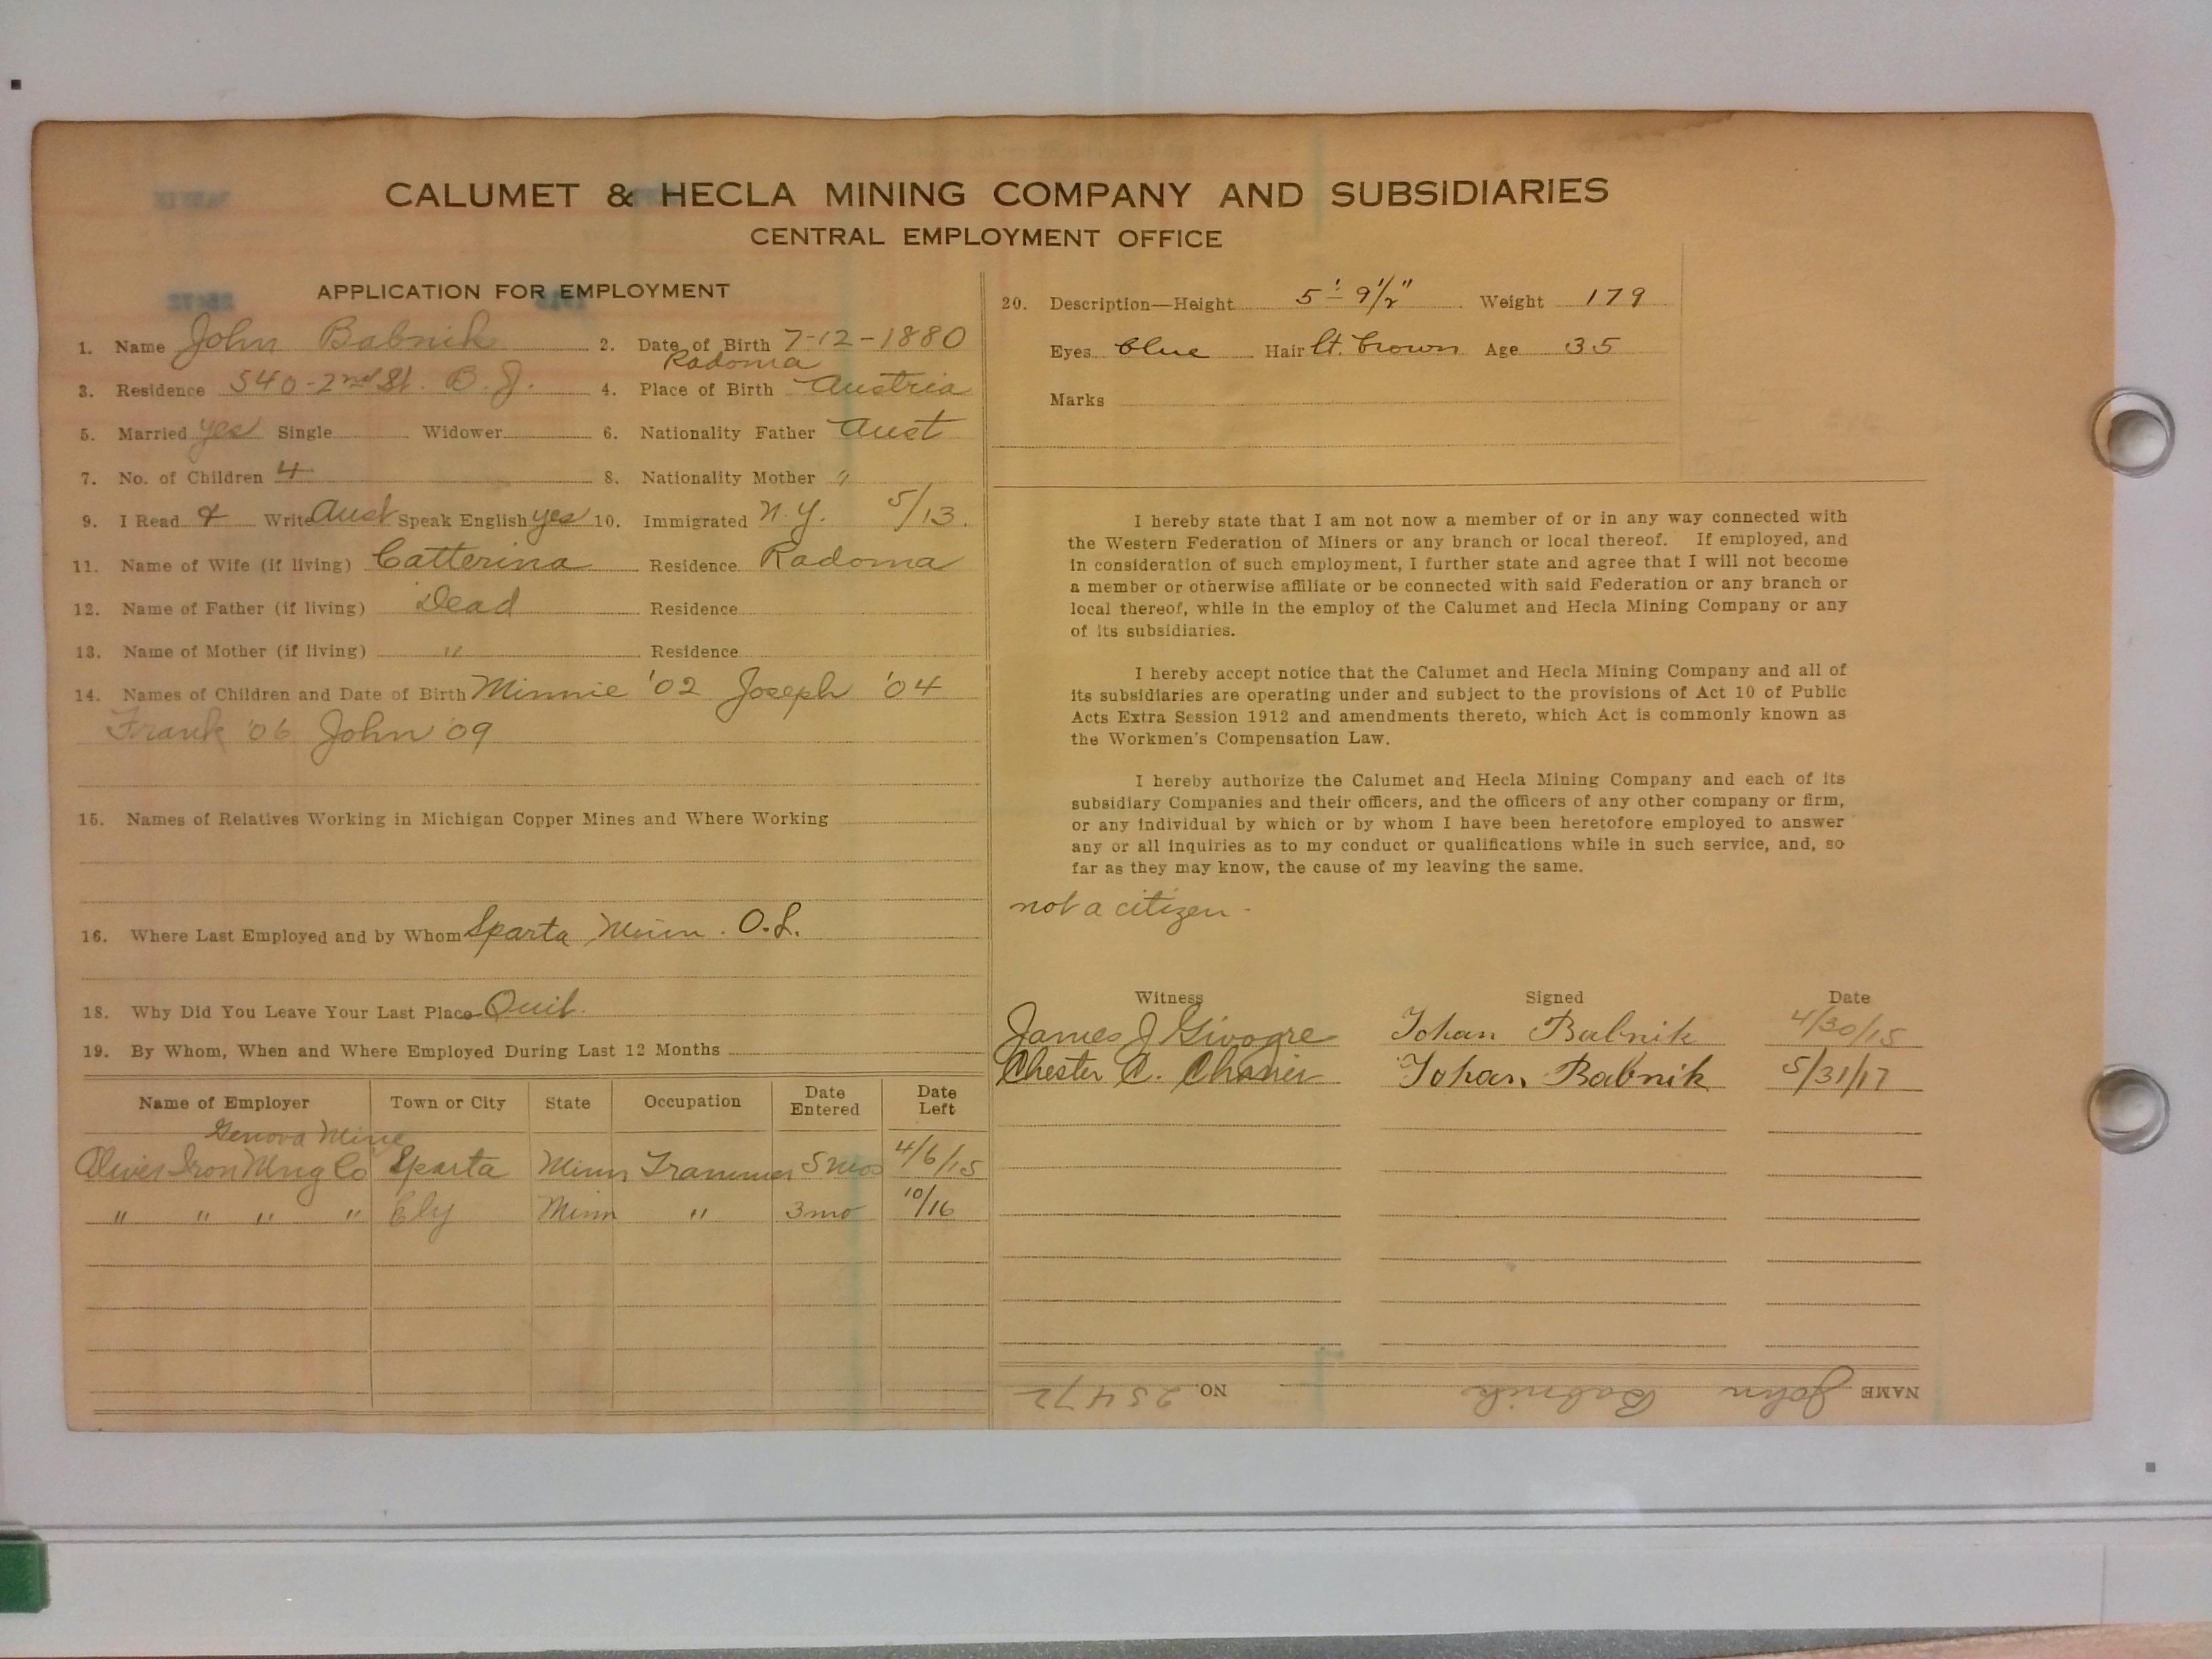 CALUMET & HECLA MINING COMPANY AND SUBSIDIARIES
CENTRAL EMPLOYMENT OFFICE
APPLICATION FOR EMPLOYMENT
1. Name John Babnik 2. Date of Birth 7-12-1880
Radoma
3. Residence 540-2nd St. B. J. 4. Place of Birth Austria
5. Married yes Single Widower 6. Nationality Father Aust
7. No. of Children 4 8. Nationality Mother "
9. I Read & Write Aust Speak English yes 10. Immigrated N.Y. 5/13.
11. Name of Wife (if living) Catterina Residence Radoma
12. Name of Father (if living) Dead Residence
13. Name of Mother (if living) " Residence
14. Names of Children and Date of Birth Minnie '02 Joseph '04
Frank '06 John '09
15. Names of Relatives Working in Michigan Copper Mines and Where Working
16. Where Last Employed and by Whom Sparta Minn. O.L.
18. Why Did You Leave Your Last Place Quit.
19. By Whom, When and Where Employed During Last 12 Months
Name of Employer Town or City State Occupation Date Entered Date Left
Genova Mine
Oliver Iron Mng Co Sparta Minn Trammer 5 mos 4/6/15
" " " " Ely Minn " 3 mo 10/16
20. Description—Height 5' 9½" Weight 179
Eyes blue Hair lt. brown Age 35
Marks
I hereby state that I am not now a member of or in any way connected with
the Western Federation of Miners or any branch or local thereof. If employed, and
in consideration of such employment, I further state and agree that I will not become
a member or otherwise affiliate or be connected with said Federation or any branch or
local thereof, while in the employ of the Calumet and Hecla Mining Company or any
of its subsidiaries.
I hereby accept notice that the Calumet and Hecla Mining Company and all of
its subsidiaries are operating under and subject to the provisions of Act 10 of Public
Acts Extra Session 1912 and amendments thereto, which Act is commonly known as
the Workmen's Compensation Law.
I hereby authorize the Calumet and Hecla Mining Company and each of its
subsidiary Companies and their officers, and the officers of any other company or firm,
or any individual by which or by whom I have been heretofore employed to answer
any or all inquiries as to my conduct or qualifications while in such service, and, so
far as they may know, the cause of my leaving the same.
not a citizen -
Witness Signed Date
James J Johan Babnik 4/30/15
Chester C. Johan Babnik 5/31/17
NAME John Babnik NO. 25472